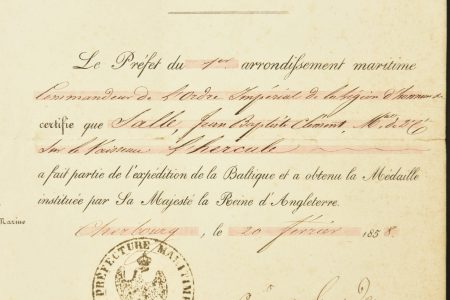 Le Préfet du 1er arrondissement maritime
Commandeur de l'Ordre Impérial de la Légion d'honneur
certifie que Sallé, Jean Baptiste Clément, Mot de 2e Cl
sur le Vaisseau l'hercule
a fait partie de l'expédition de la Baltique et a obtenu la Médaille
instituée par Sa Majesté la Reine d'Angleterre.
Marine
Cherbourg, le 20 février 1858.
PRÉFECTURE MARITIME